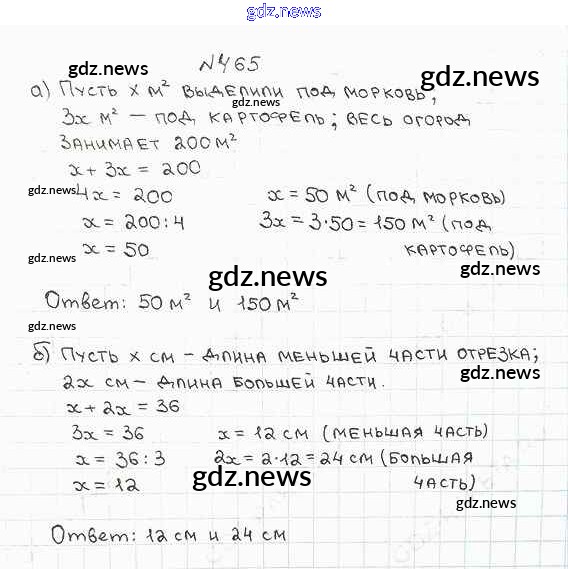 gdz.news
№465
gdz.news
gdz.news
а) Пусть x м² выделили под морковь,
gdz.news
3x м² – под картофель; весь огород
занимает 200 м²
x + 3x = 200
gdz.news
4x = 200 x = 50 м² (под морковь)
x = 200:4 3x = 3·50 = 150 м² (под
x = 50 картофель)
gdz.news
gdz.news
gdz.news
Ответ: 50 м² и 150 м²
gdz.news
б) Пусть x см – длина меньшей части отрезка;
gdz.news
2x см – длина большей части.
x + 2x = 36
3x = 36 x = 12 см (меньшая часть)
x = 36:3 2x = 2·12 = 24 см (большая
x = 12 часть)
gdz.news
gdz.news
Ответ: 12 см и 24 см
gdz.news